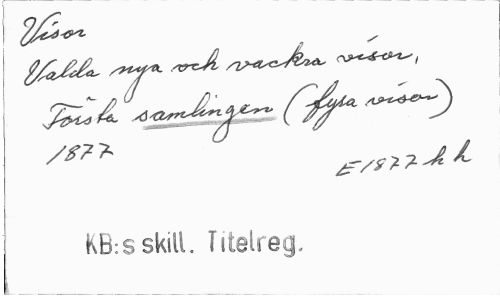 Visor
Valda nya och vackra visor,
Första samlingen (fyra visor)
1877
E 1877 h h
KB:s skill. Titelreg.